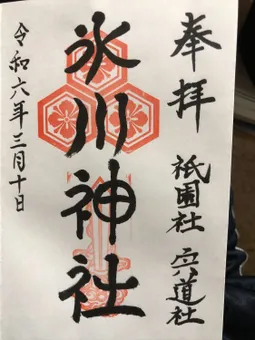 奉拝
祇園社 宍道社
氷川神社
令和六年三月十日